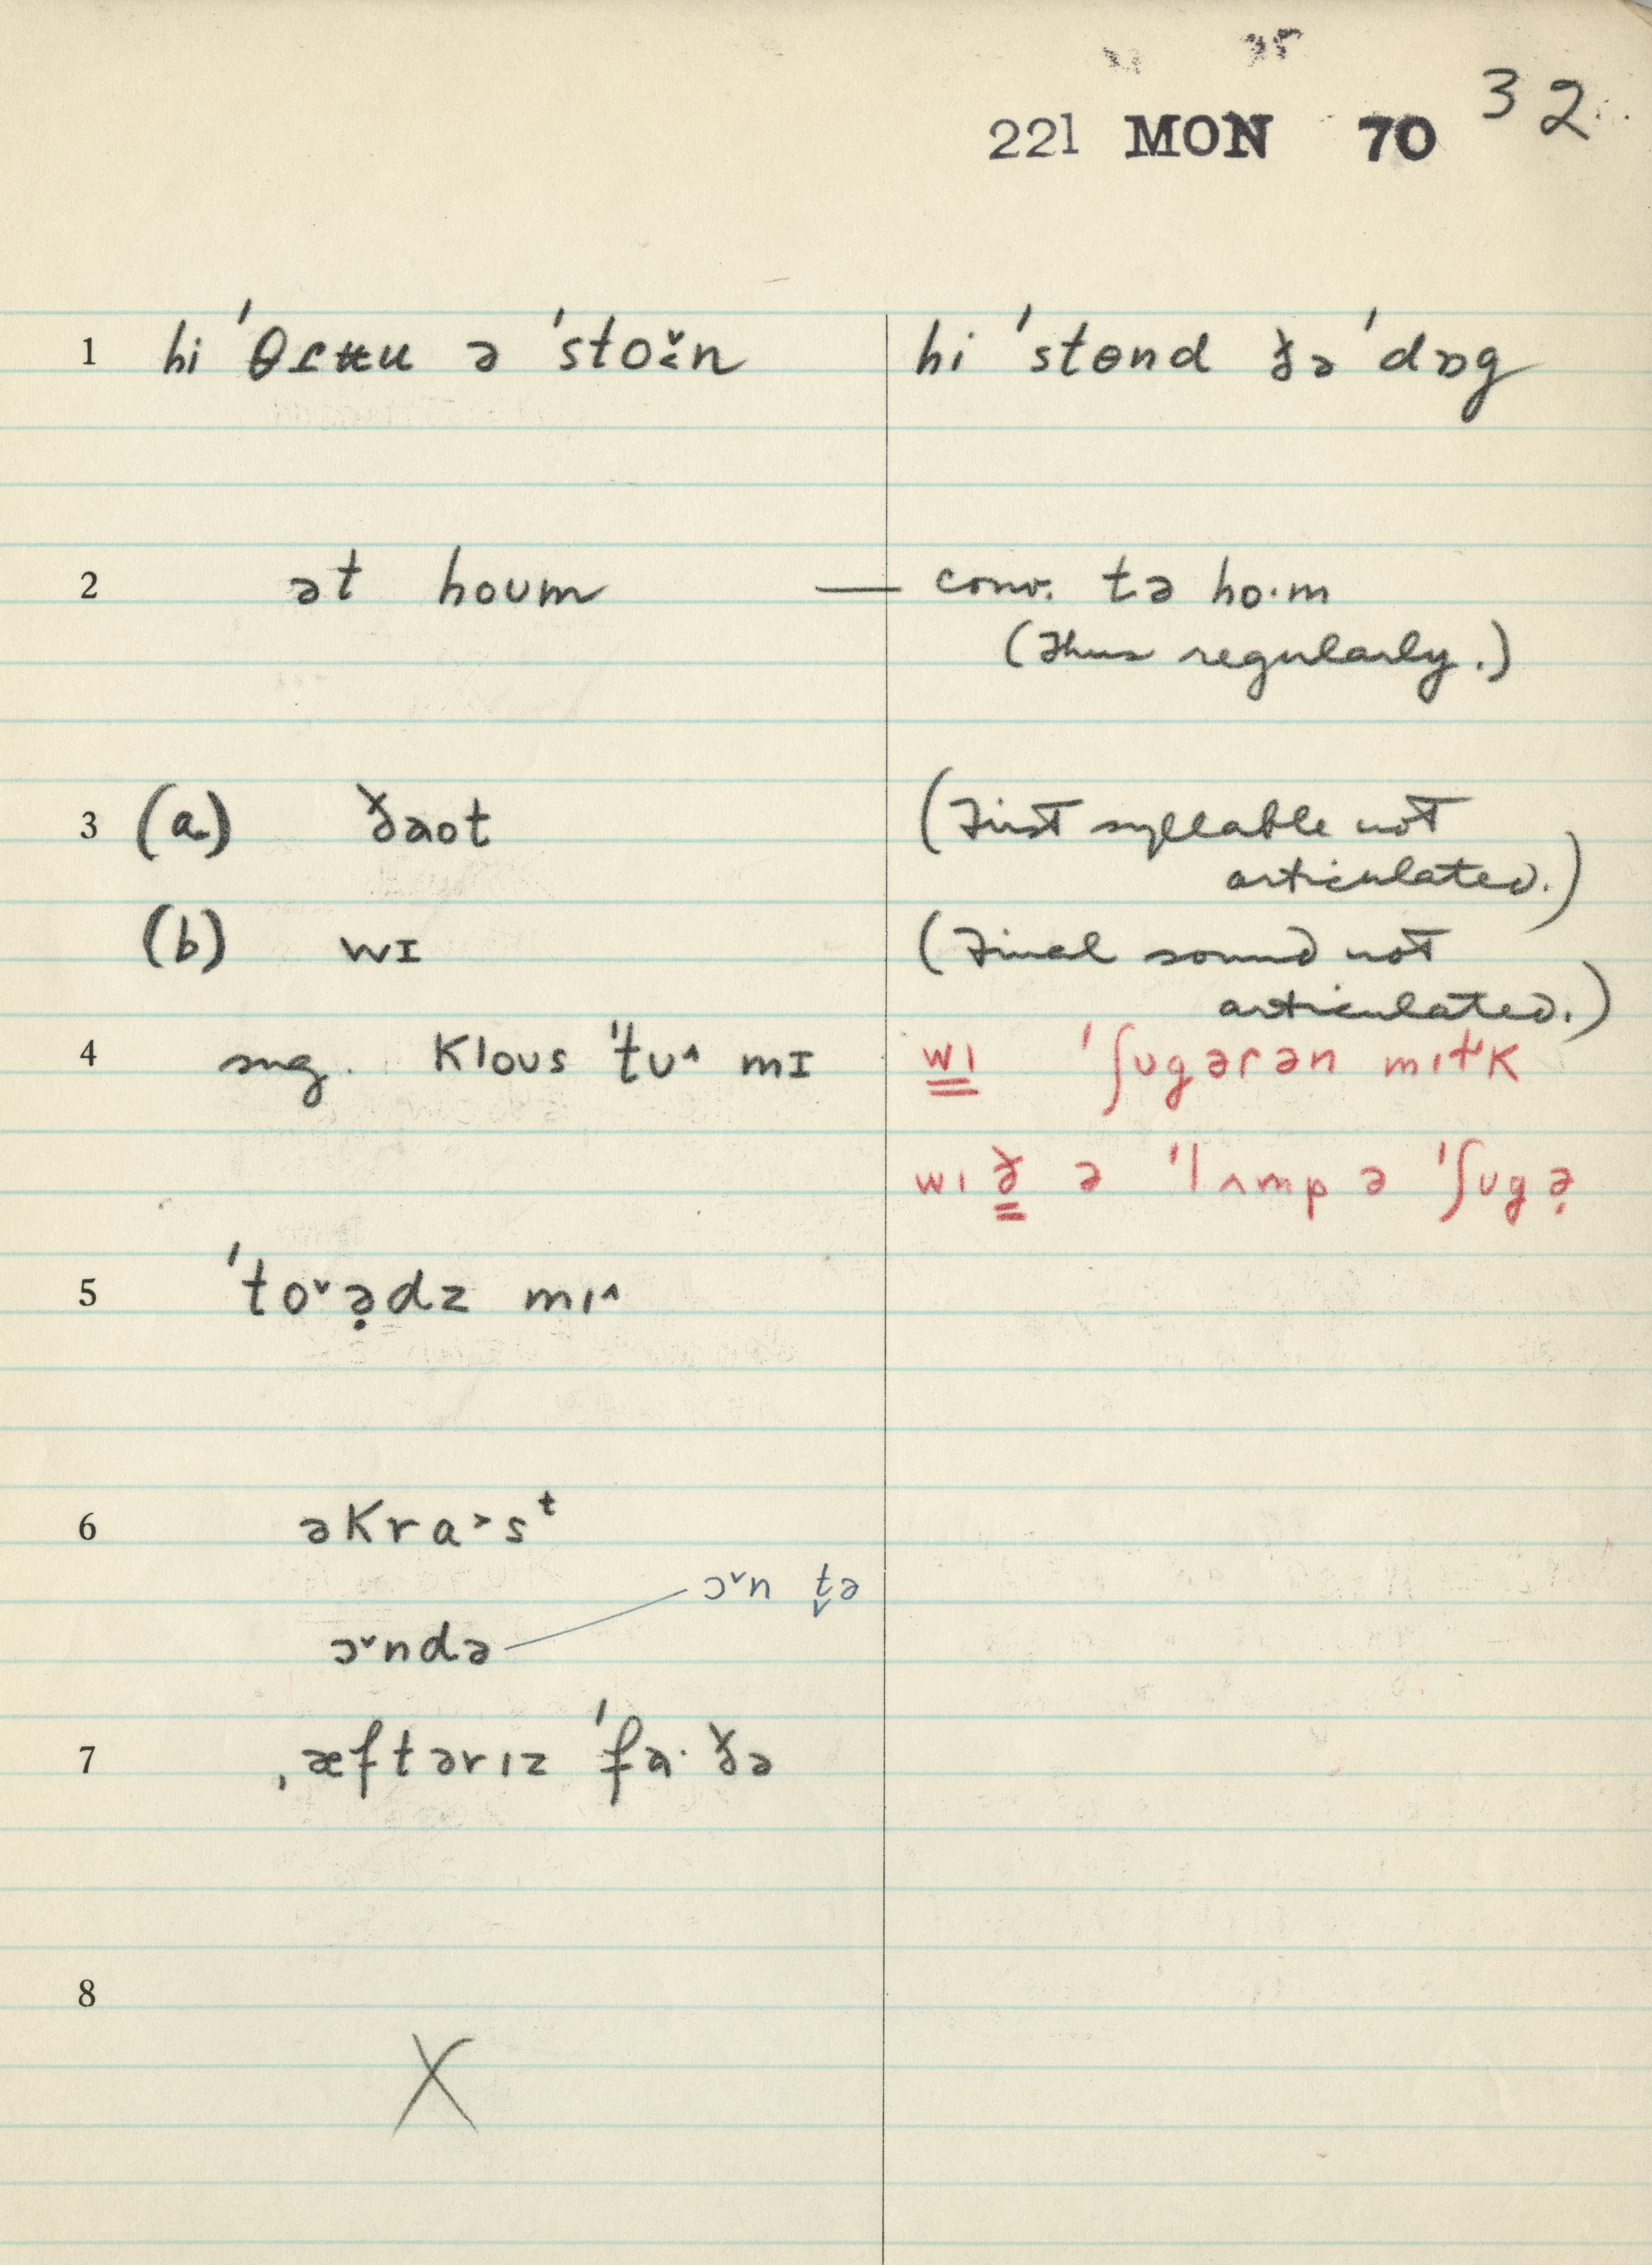 32
221 MON 70
1 hi ˈθɾʉu ə ˈstoɪ̌n hi ˈstɵnd ðə ˈdɒg
2 ət houm — conv. tə ho·m
(Thus regularly.)
3 (a) ðaot (First syllable not
articulated.)
(b) wɪ (Final sound not
articulated.)
4 sug. klous ˈtʊ^ mɪ wɪ ˈʃʊgərən mɪɫk
wɪð ə ˈlʌmp ə ˈʃʊgə̣
5 ˈto˅ə̣dz mɪ^
6 əkra>sᵗ
ɔ˅n t̬ə
ɔ˅ndə
7 ˌæftərɪz ˈfa·ðə
8
X